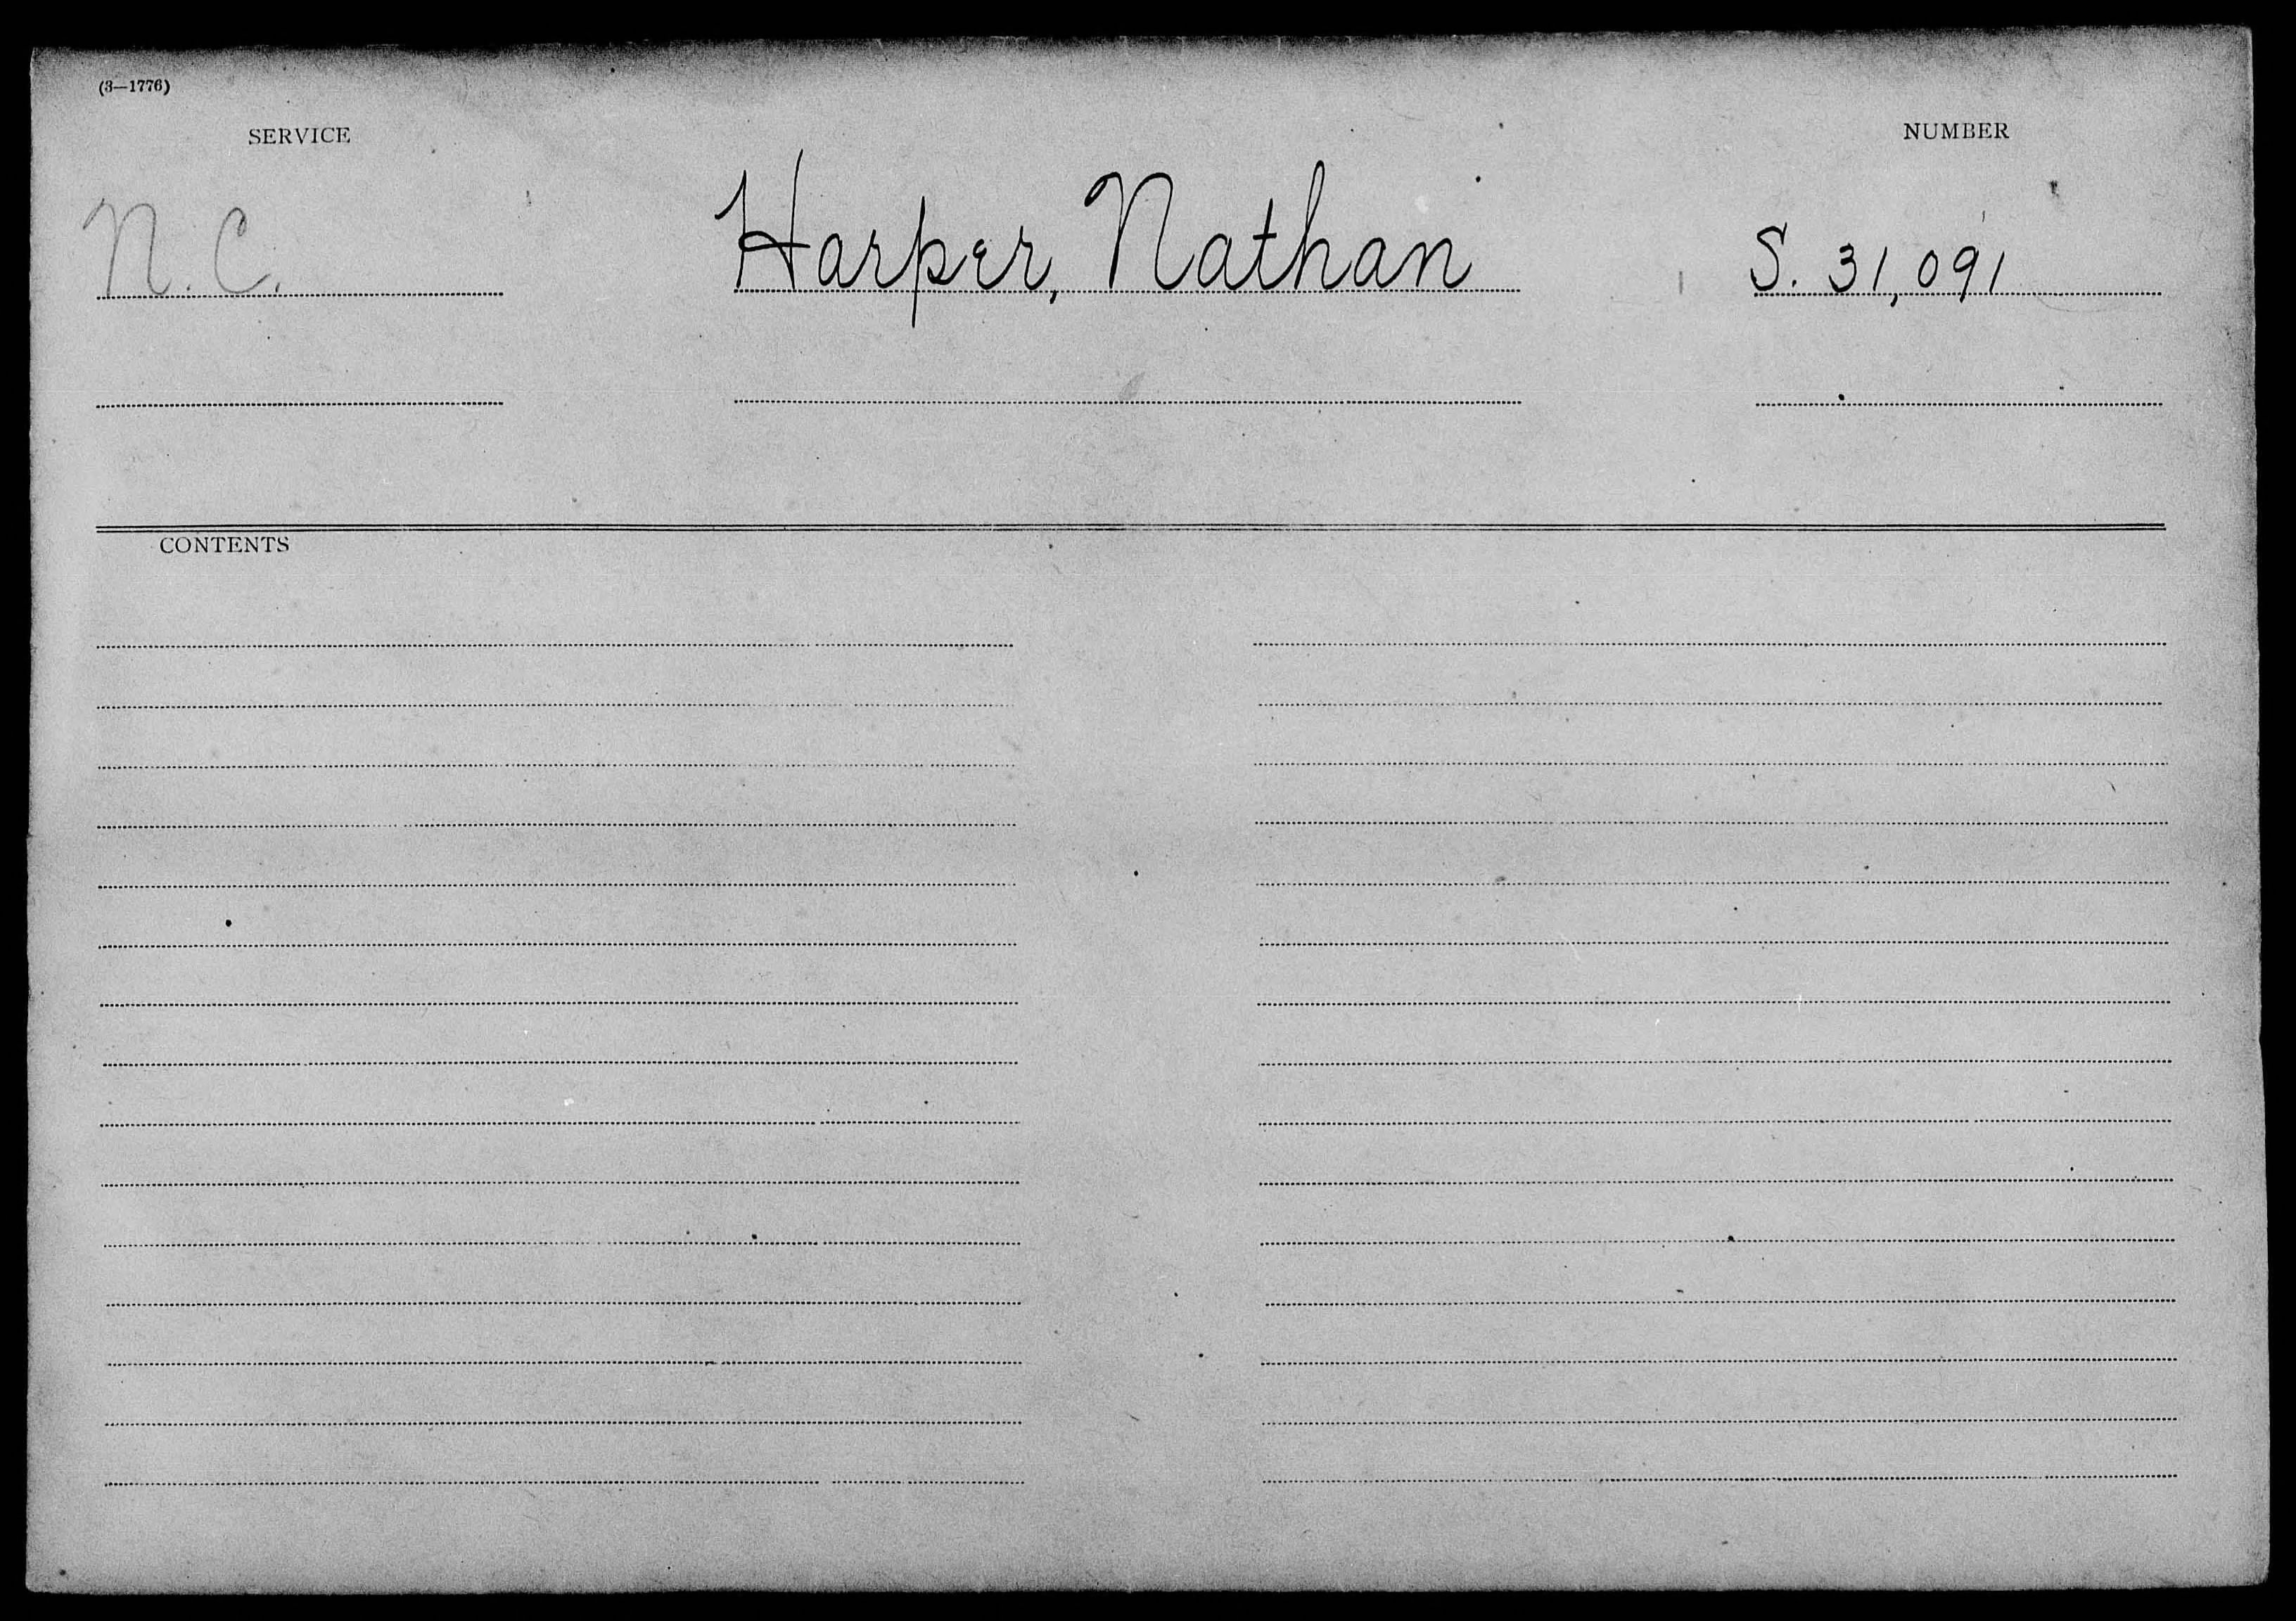 (3—1776)
SERVICE
NUMBER
N. C.
Harper, Nathan
S. 31,091
CONTENTS